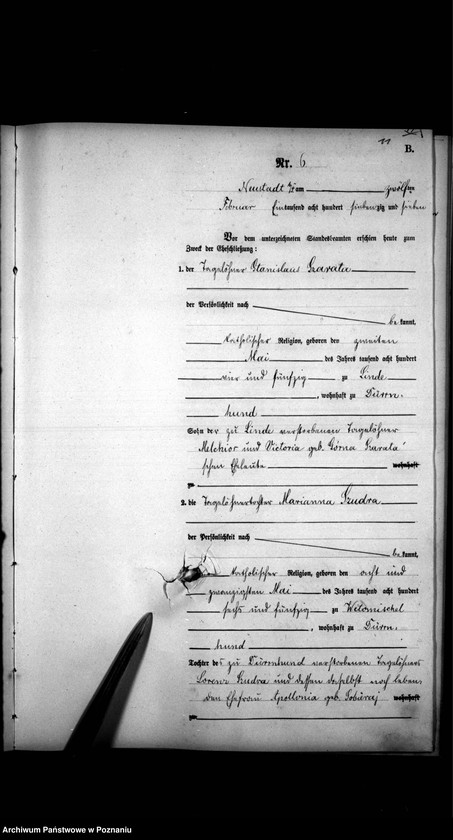 11
B.
Nr. 6
Neustadt b/P am zwölften
Februar Eintausend acht hundert siebenzig und sieben
Vor dem unterzeichneten Standesbeamten erschien heute zum
Zweck der Eheschließung:
1. der Tagelöhner Stanislaus
der Persönlichkeit nach
be kannt,
katholischer Religion, geboren den zweiten
Mai des Jahres tausend acht hundert
vier und fünfzig zu Linde
, wohnhaft zu Dürrn-
hund
Sohn der zu Linde verstorbenen Tagelöhner
Melchior und Victoria geb. Górna
schen Eheleute wohnhaft
zu
2. die Tagelöhnertochter Marianna Szudra
der Persönlichkeit nach
be kannt,
katholischer Religion, geboren den acht und
zwanzigsten Mai des Jahres tausend acht hundert
sechs und fünfzig zu
, wohnhaft zu Dürrn-
hund
Tochter des zu Dürrnhund verstorbenen Tagelöhners
Lorenz Szudra und dessen daselbst noch leben-
den Ehefrau Apollonia geb. wohnhaft
zu
Archiwum Państwowe w Poznaniu